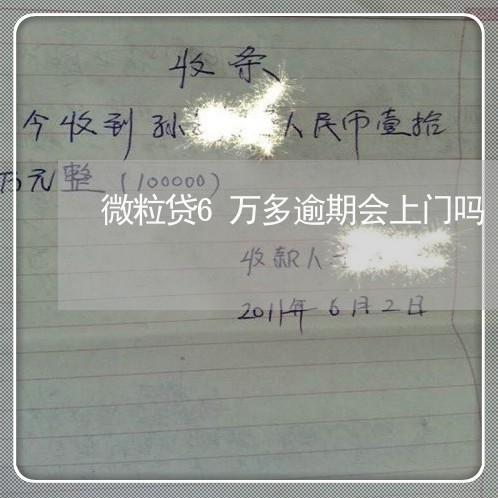 收条
今收到孙 人民币壹拾
万元整(100000)
微粒贷6 万多逾期会上门吗
收款人
2011年6月2日